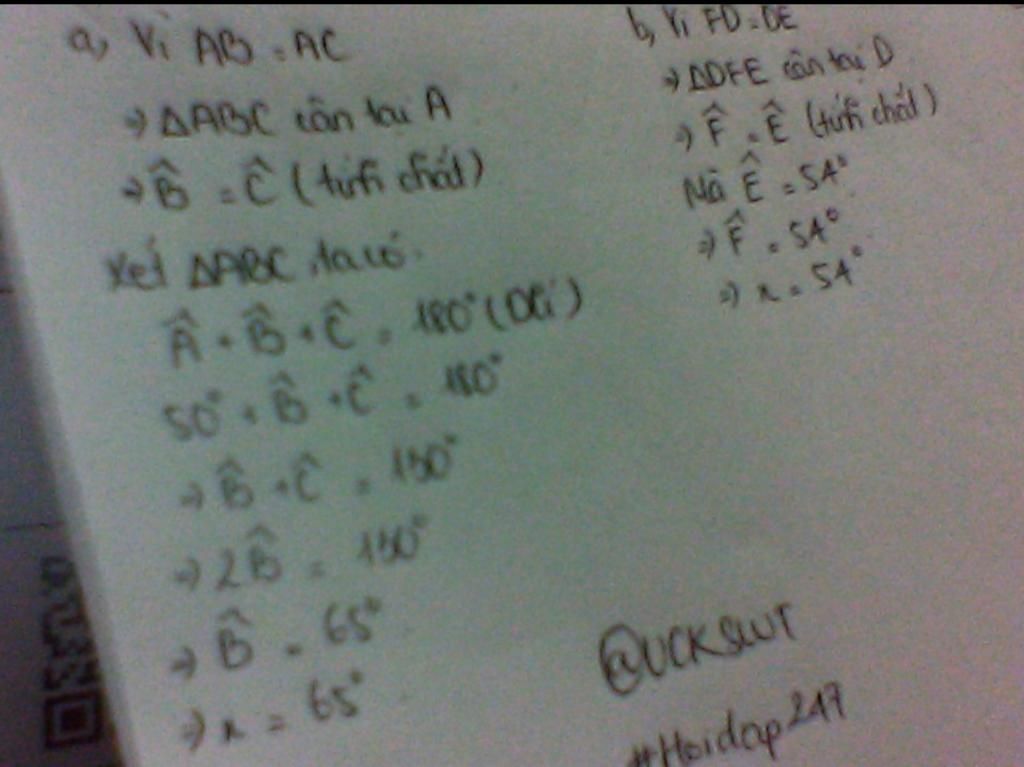 a, Vì AB = AC
=> ΔABC cân tại A
=> B̂ = Ĉ (tính chất)
Xét ΔABC, ta có:
Â + B̂ + Ĉ = 180° (Đlí)
50° + B̂ + Ĉ = 180°
=> B̂ + Ĉ = 130°
=> 2B̂ = 130°
=> B̂ = 65°
=> x = 65°
b, Vì FD = DE
=> ΔDFE cân tại D
=> F̂ = Ê (tính chất)
Mà Ê = 54°
=> F̂ = 54°
=> x = 54°
@UCKSWT
#Hoidap247